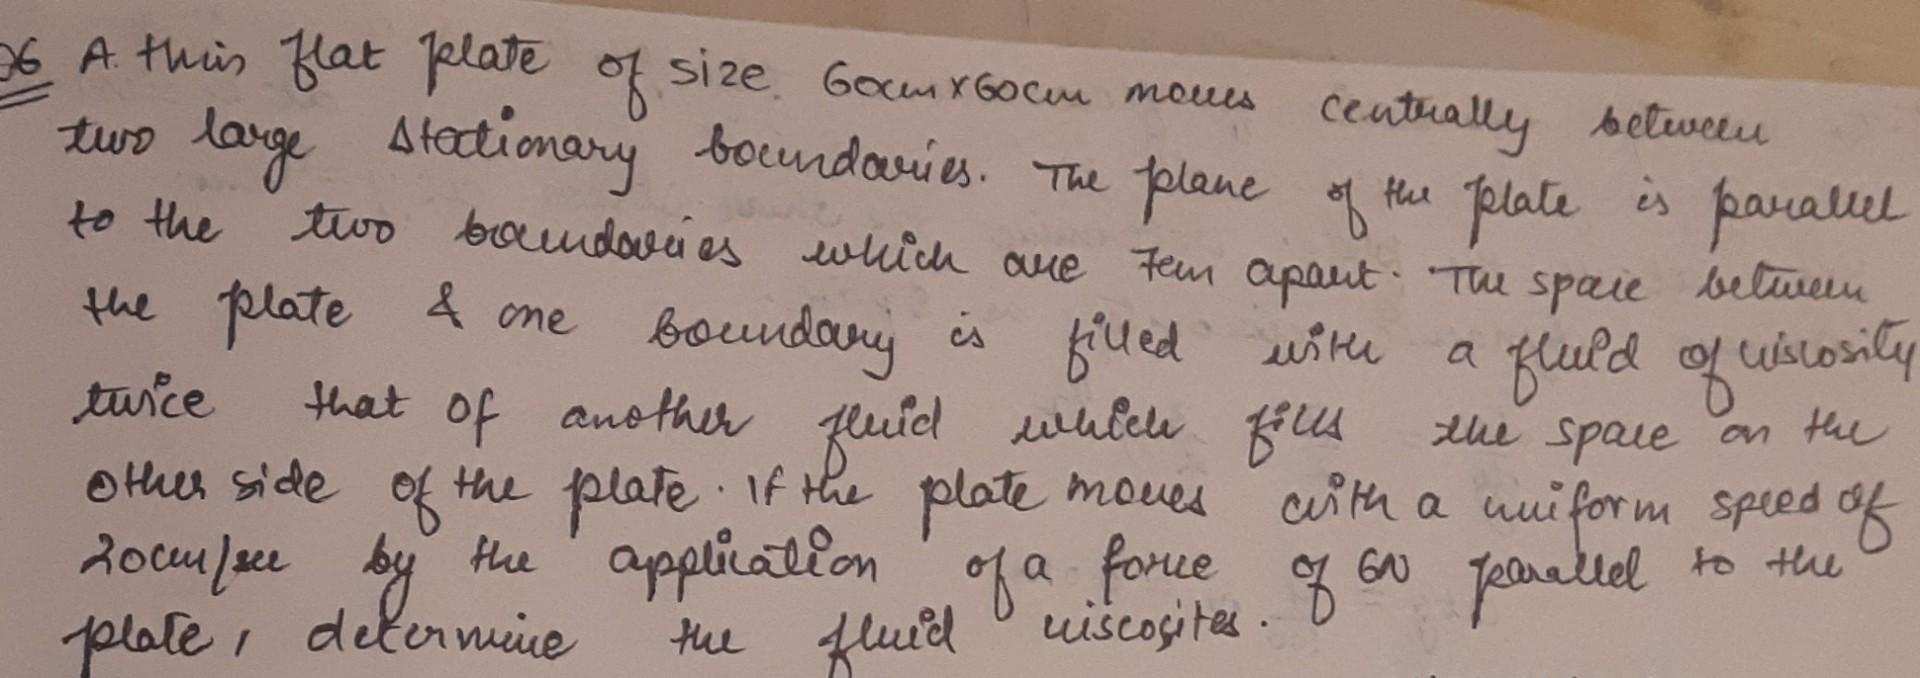 Q6 A thin flat plate of size 60cm x 60cm moves centrally between
two large stationary boundaries. The plane of the plate is parallel
to the two boundaries which are 7cm apart. The space between
the plate & one boundary is filled with a fluid of viscosity
twice that of another fluid which fills the space on the
other side of the plate. If the plate moves with a uniform speed of
20cm/sec by the application of a force of 6N parallel to the
plate, determine the fluid viscosites.